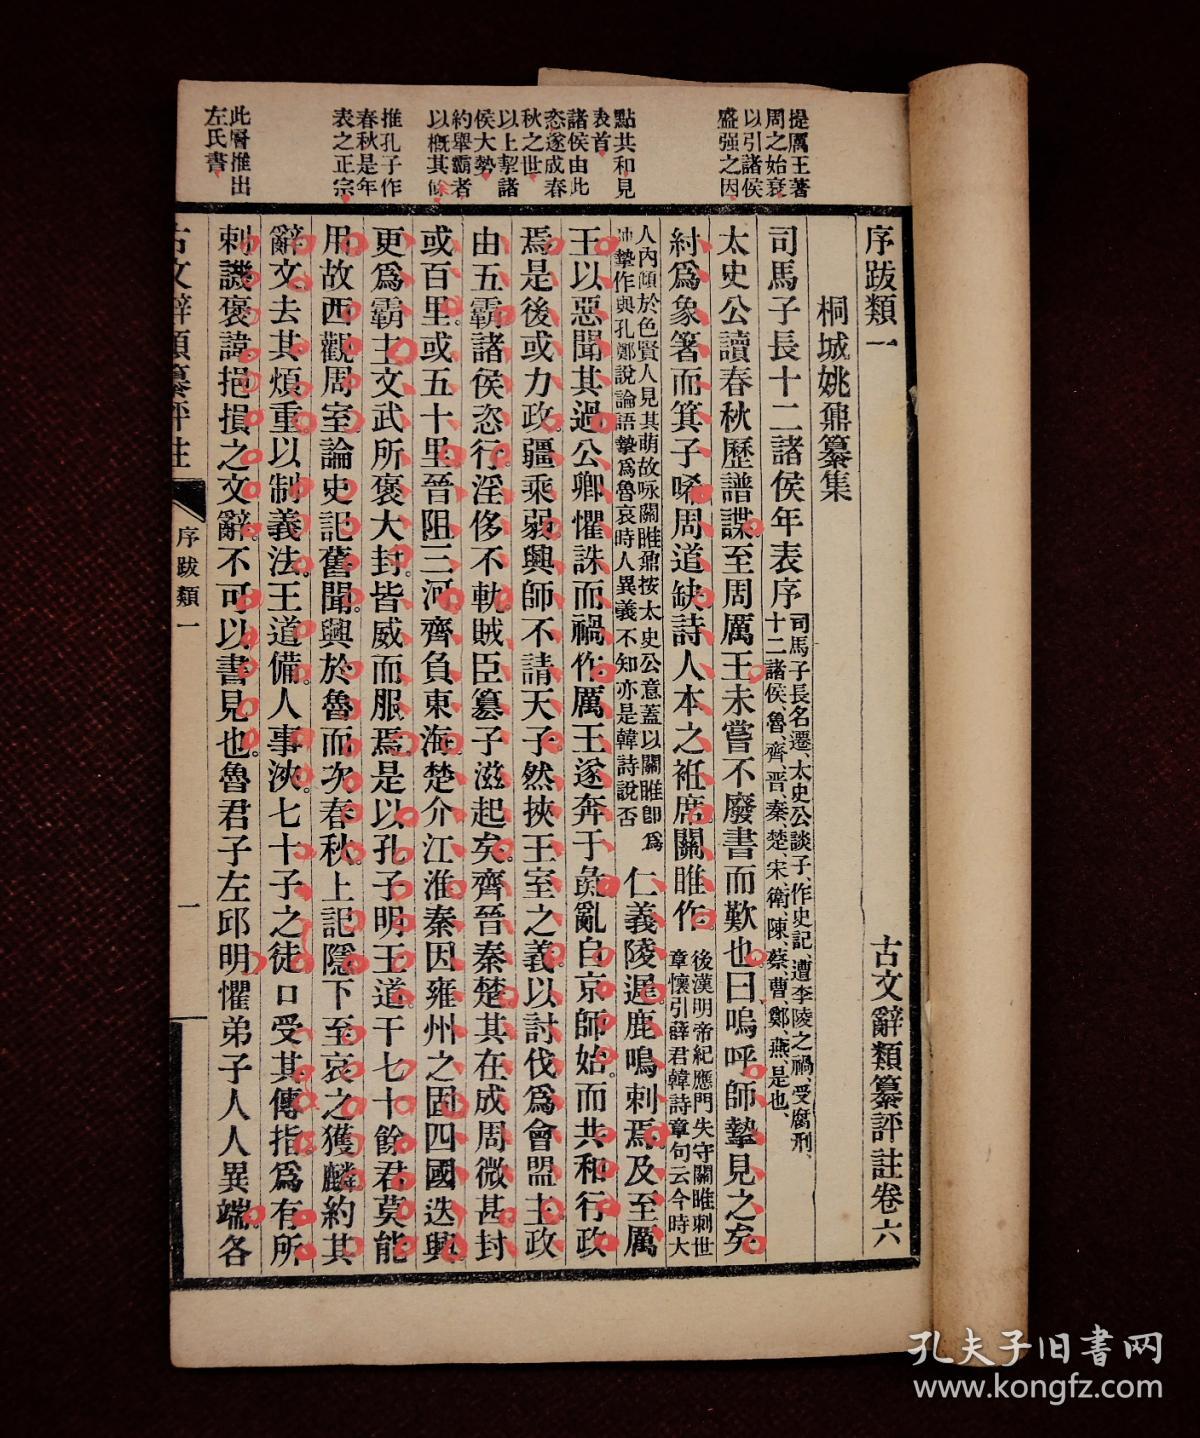 提厲王著
周之始衰
以引諸侯
盛强之因
點共和見
表首
諸侯由此
恣遂成春
秋之世
以上挈諸
侯大勢
約舉霸者
以概其餘
推孔子作
春秋是年
表之正宗
此層推出
左氏書
序跋類一 古文辭類纂評註卷六
桐城姚鼐纂集
司馬子長十二諸侯年表序
司馬子長名遷、太史公談子、作史記、遭李陵之禍、受腐刑、
十二諸侯、魯、齊、晋、秦、楚、宋、衛、陳、蔡、曹、鄭、燕、是也、
太史公讀春秋歷譜諜。至周厲王。未嘗不廢書而歎也。曰嗚呼。師摯見之矣。
紂爲象箸而箕子唏。周道缺。詩人本之袵席。關雎作。
後漢明帝紀應門失守關雎刺世
章懷引薛君韓詩章句云今時大
人內傾於色賢人見其萌故咏關雎鼐按太史公意蓋以關雎即爲
師摯作與孔鄭說論語摯爲魯哀時人異義不知亦是韓詩說否
仁義陵遲。鹿鳴刺焉。及至厲
王以惡聞其過。公卿懼誅而禍作。厲王遂奔于彘。亂自京師始。而共和行政
焉。是後或力政。彊乘弱。興師不請天子。然挾王室之義。以討伐爲會盟主。政
由五霸。諸侯恣行。淫侈不軌。賊臣篡子滋起矣。齊晉秦楚。其在成周微甚。封
或百里。或五十里。晉阻三河。齊負東海。楚介江淮。秦因雍州之固。四國迭興。
更爲霸主。文武所褒大封。皆威而服焉。是以孔子明王道。干七十餘君。莫能
用。故西觀周室。論史記舊聞。興於魯而次春秋。上記隱下至哀之獲麟。約其
辭文。去其煩重。以制義法。王道備。人事浹。七十子之徒口受其傳指。爲有所
刺譏褒諱挹損之文辭。不可以書見也。魯君子左邱明。懼弟子人人異端。各
古文辭類纂評註 序跋類一 一
孔夫子旧书网
www.kongfz.com